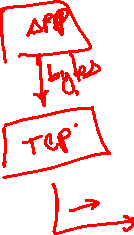 APP
bytes
TCP